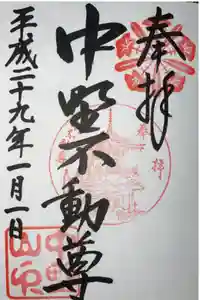 奉拝
中野不動尊
平成二十九年一月一日